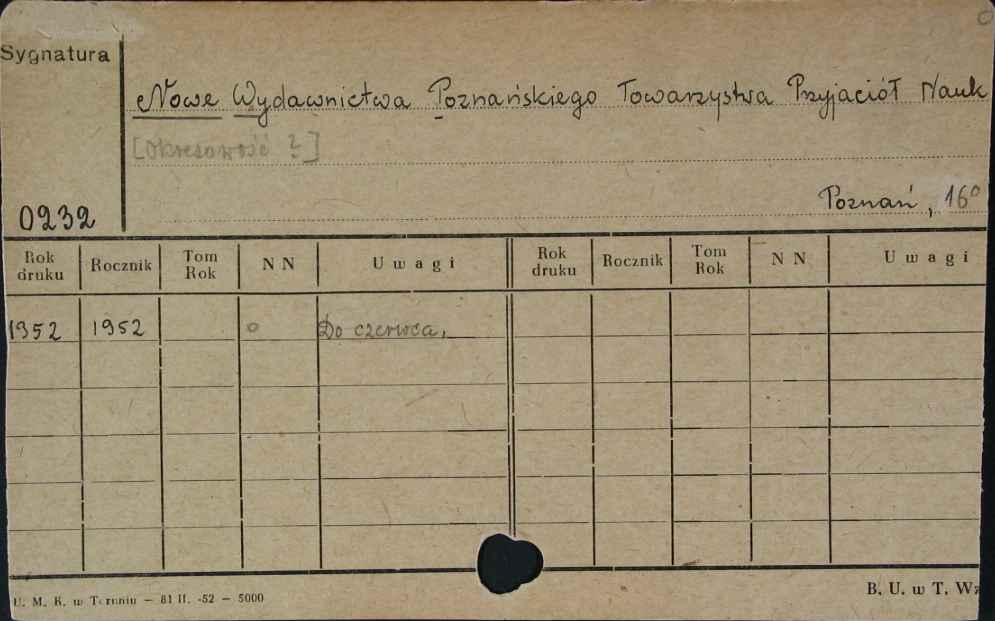 Sygnatura
Nowe Wydawnictwa Poznańskiego Towarzystwa Przyjaciół Nauk
[Okresowość ?]
Poznań, 16°
0232
Rok druku Rocznik Tom Rok N N Uwagi Rok druku Rocznik Tom Rok N N Uwagi
1952 1952 0 Do czerwca.
U. M. K. w Toruniu — 81 II. -52 — 5000
B. U. w T. Wz